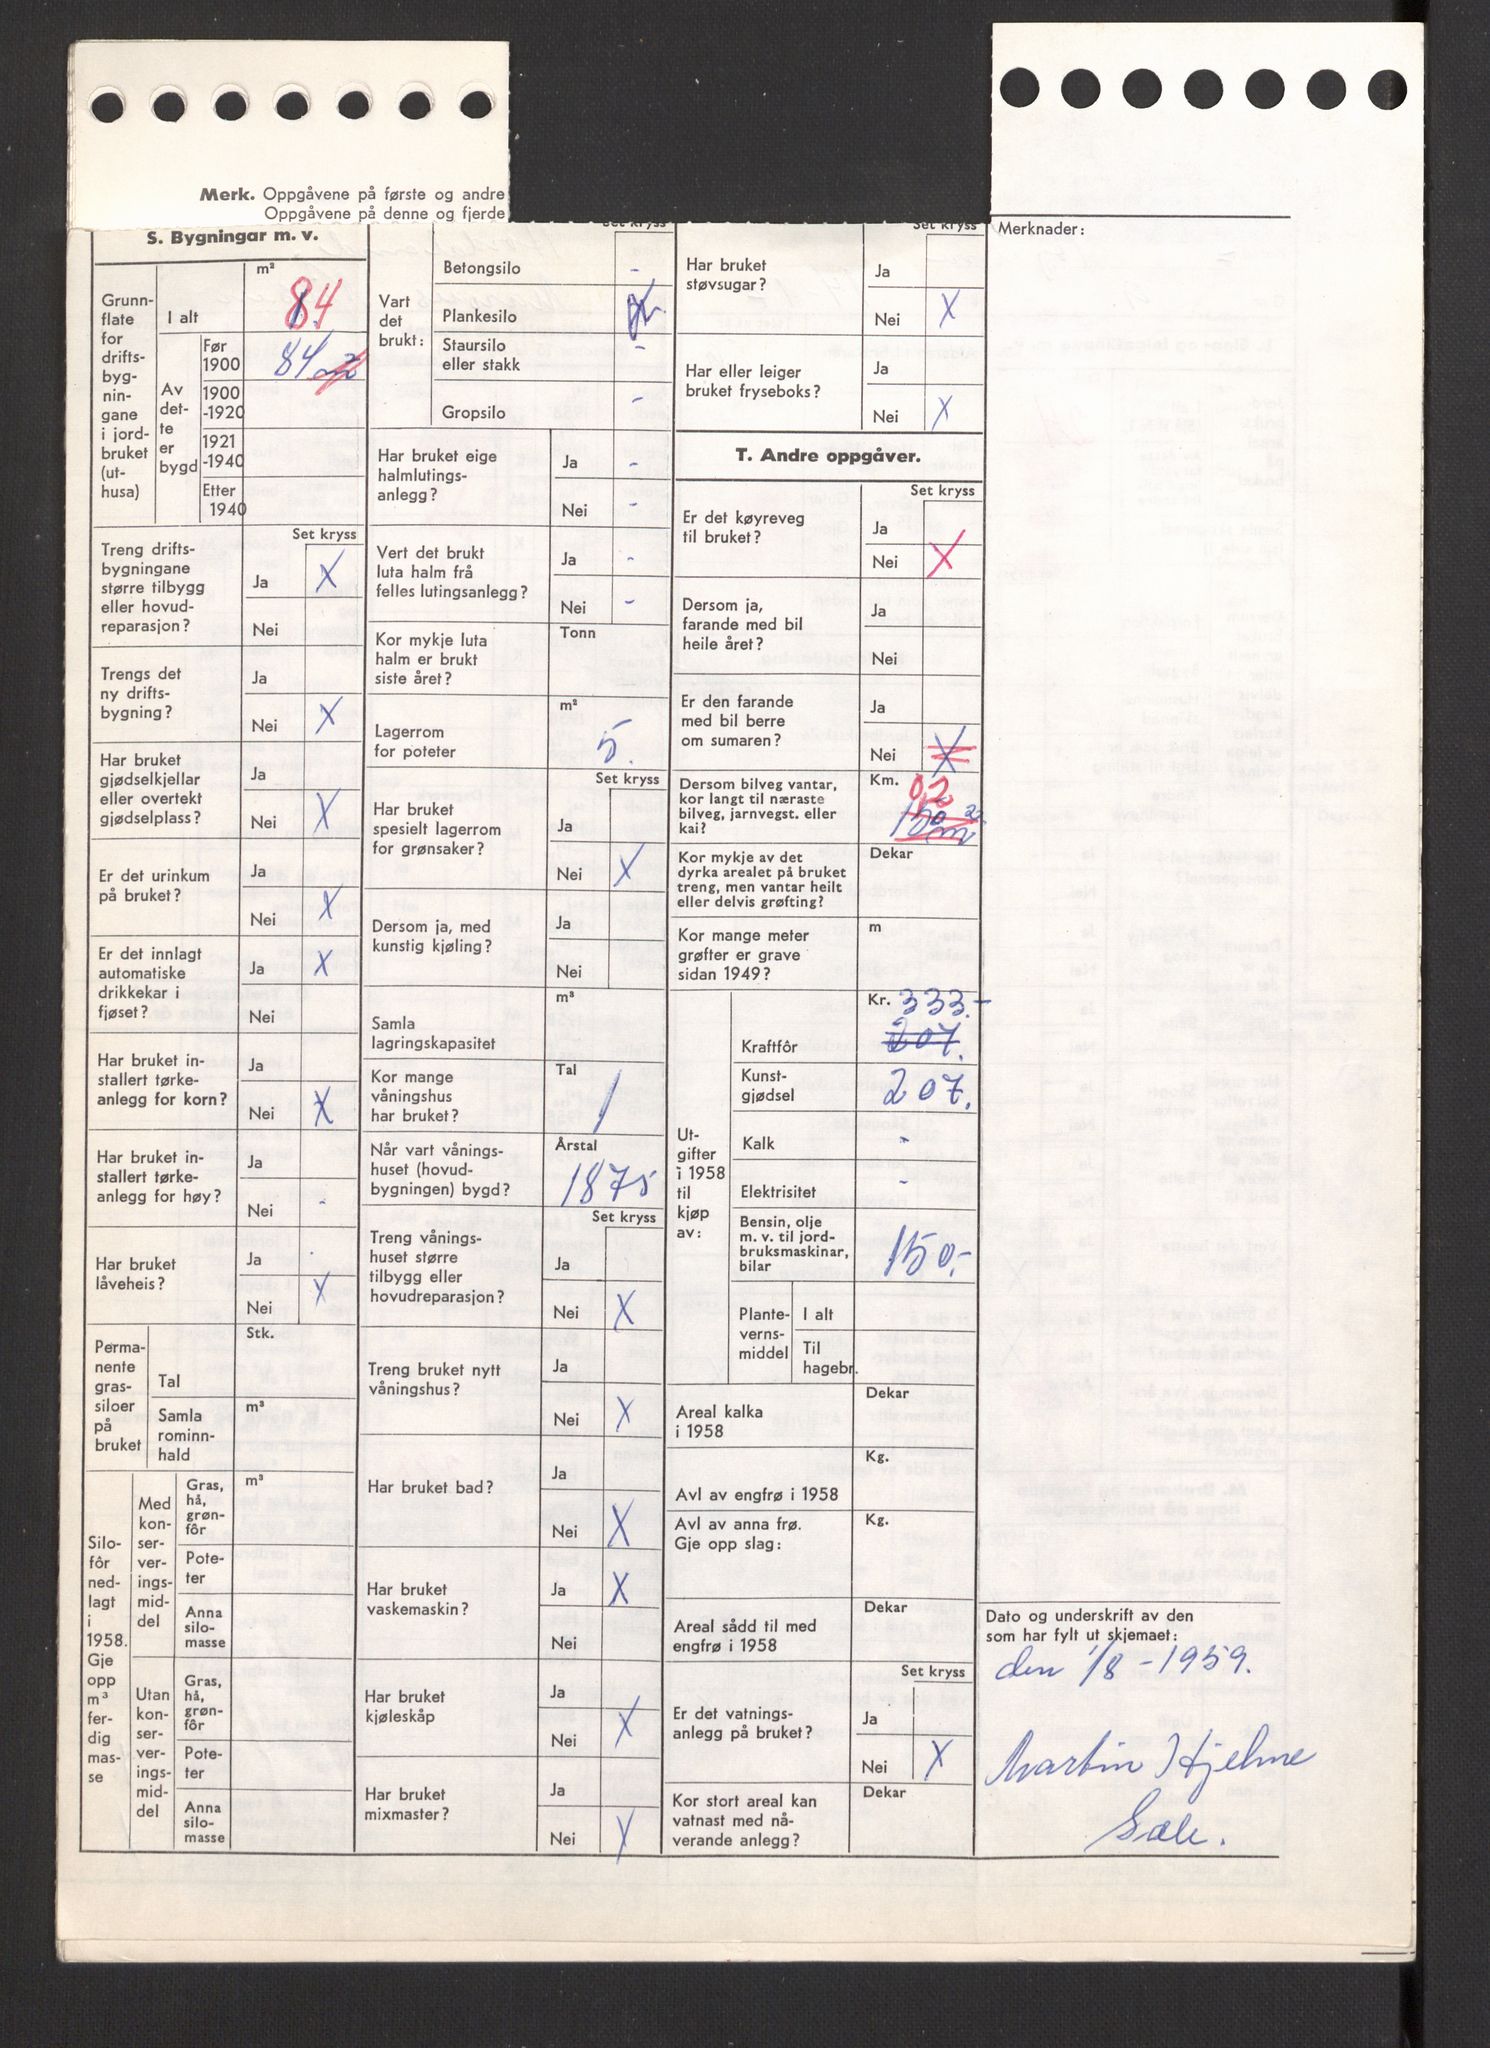 Merk. Oppgåvene på første og andre
Oppgåvene på denne og fjerde
S. Bygningar m. v.
Grunn-
flate
for
drifts-
byg-
nin-
gane
i jord-
bruket
(ut-
husa)
m²
I alt
84
Av
det-
te
er
bygd
Før
1900
84 m²
1900
-1920
1921
-1940
Etter
1940
Set kryss
Treng drifts-
bygningane
større tilbygg
eller hovud-
reparasjon?
Ja X
Nei
Trengs det
ny drifts-
bygning?
Ja
Nei X
Har bruket
gjødselkjellar
eller overtekt
gjødselplass?
Ja
Nei X
Er det urinkum
på bruket?
Ja
Nei X
Er det innlagt
automatiske
drikkekar i
fjøset?
Ja X
Nei
Har bruket in-
stallert tørke-
anlegg for korn?
Ja
Nei X
Har bruket in-
stallert tørke-
anlegg for høy?
Ja
Nei -
Har bruket
låveheis?
Ja
Nei X
Perma-
nente
gras-
siloer
på
bruket
Stk.
Tal
Samla
rominn-
hald
m³
Silo-
fôr
ned-
lagt
i
1958.
Gje
opp
m³
fer-
dig
mas-
se
Med
kon-
ser-
ver-
ings-
mid-
del
Gras,
hå,
grøn-
fôr
m³
Pote-
ter
Anna
silo-
masse
Utan
kon-
ser-
ver-
ings-
mid-
del
Gras,
hå,
grøn-
fôr
Pote-
ter
Anna
silo-
masse
Set kryss
Vart
det
brukt:
Betongsilo -
Plankesilo
Staursilo
eller stakk -
Gropsilo -
Har bruket eige
halmlutings-
anlegg?
Ja -
Nei -
Vert det brukt
luta halm frå
felles lutingsanlegg?
Ja -
Nei -
Kor mykje luta
halm er brukt
siste året?
Tonn
Lagerrom
for poteter
m²
5
Set kryss
Har bruket
spesielt lagerrom
for grønsaker?
Ja
Nei X
Dersom ja, med
kunstig kjøling?
Ja
Nei
Samla
lagringskapasitet
m³
Kor mange
våningshus
har bruket?
Tal
1
Når vart vånings-
huset (hovud-
bygningen) bygd?
Årstal
1875
Set kryss
Treng vånings-
huset større
tilbygg eller
hovudreparasjon?
Ja
Nei X
Treng bruket nytt
våningshus?
Ja
Nei X
Har bruket bad?
Ja
Nei X
Har bruket
vaskemaskin?
Ja X
Nei
Har bruket
kjøleskåp
Ja
Nei X
Har bruket
mixmaster?
Ja
Nei X
Set kryss
Har bruket
støvsugar?
Ja
Nei X
Har eller leiger
bruket fryseboks?
Ja
Nei X
T. Andre oppgåver.
Set kryss
Er det køyreveg
til bruket?
Ja
Nei X
Dersom ja,
farande med bil
heile året?
Ja
Nei
Er den farande
med bil berre
om sumaren?
Ja
Nei X
Dersom bilveg vantar,
kor langt til næraste
bilveg, jarnvegst. eller
kai?
Km.
0,2
150 m
Kor mykje av det
dyrka arealet på bruket
treng, men vantar heilt
eller delvis grøfting?
Dekar
Kor mange meter
grøfter er grave
sidan 1949?
m
Ut-
gifter
i 1958
til
kjøp
av:
Kr. 333.-
Kraftfôr 207.
Kunst-
gjødsel 207.
Kalk -
Elektrisitet -
Bensin, olje
m. v. til jord-
bruksmaskinar,
bilar
150.-
Plante-
verns-
middel
I alt
Til
hagebr.
Areal kalka
i 1958
Dekar
Avl av engfrø i 1958
Kg.
Avl av anna frø.
Gje opp slag:
Kg.
Areal sådd til med
engfrø i 1958
Dekar
Set kryss
Er det vatnings-
anlegg på bruket?
Ja
Nei X
Kor stort areal kan
vatnast med nå-
verande anlegg?
Dekar
Merknader:
Dato og underskrift av den
som har fylt ut skjemaet:
den 1/8 - 1959.
Martin Hjelme
Sæle.